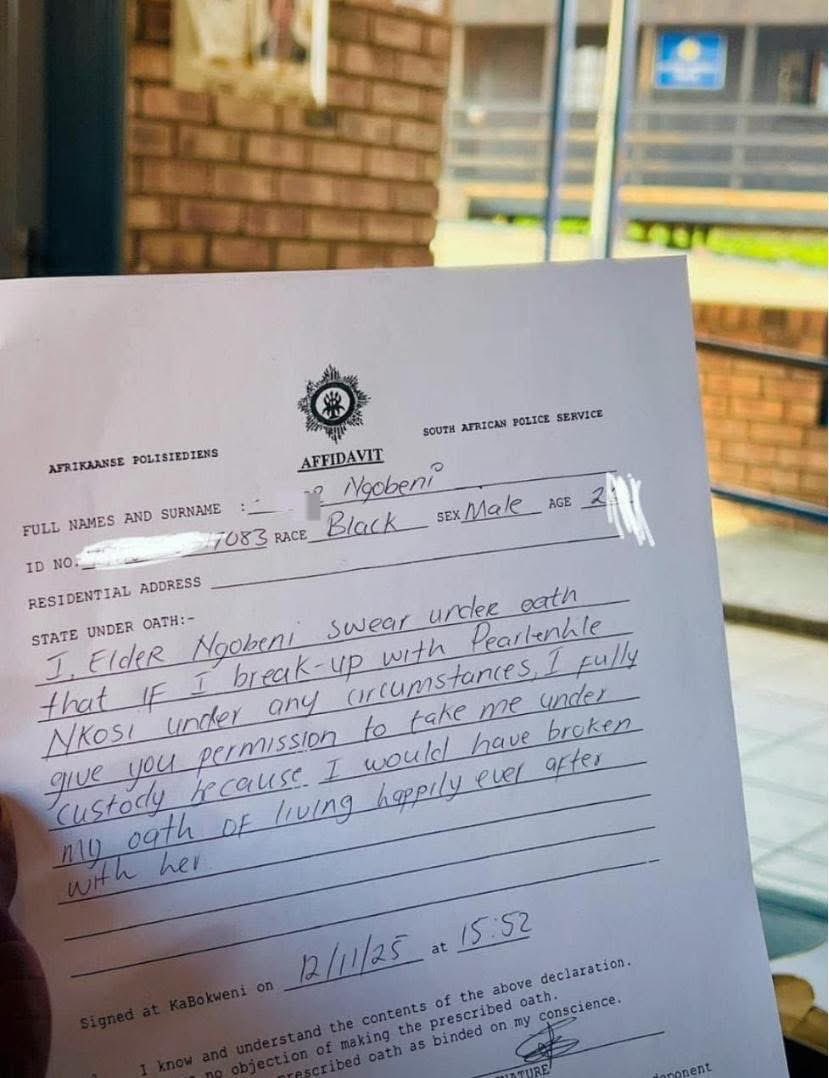 AFRIKAANSE POLISIEDIENS
SOUTH AFRICAN POLICE SERVICE
AFFIDAVIT
FULL NAMES AND SURNAME : Ngobeni
ID NO: 7083 RACE Black SEX Male AGE 2
RESIDENTIAL ADDRESS
STATE UNDER OATH:-
I, Elder Ngobeni swear under oath
that IF I break-up with Pearlenhle
Nkosi under any circumstances, I fully
give you permission to take me under
custody because I would have broken
my oath of living happily ever after
with her.
Signed at KaBokweni on 12/11/25 at 15:52
I know and understand the contents of the above declaration.
no objection of making the prescribed oath.
prescribed oath as binded on my conscience.